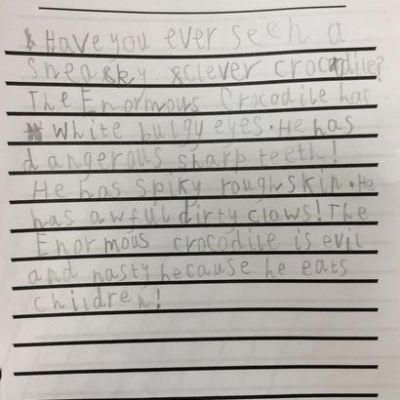 Have you ever seen a
sneaky &clever crocodile?
The Enormous Crocodile has
white bulgy eyes. He has
dangerous sharp teeth!
He has spiky rough skin. He
has awful dirty claws! The
Enormous crocodile is evil
and nasty because he eats
children!